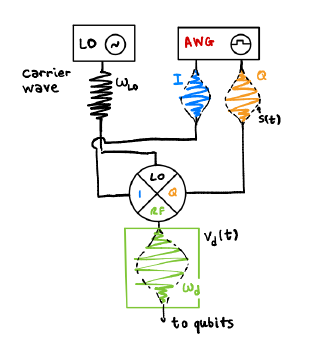 LO
AWG
carrier
wave
ω_LO
I
Q
S(t)
LO
I
Q
RF
V_d(t)
ω_d
to qubits